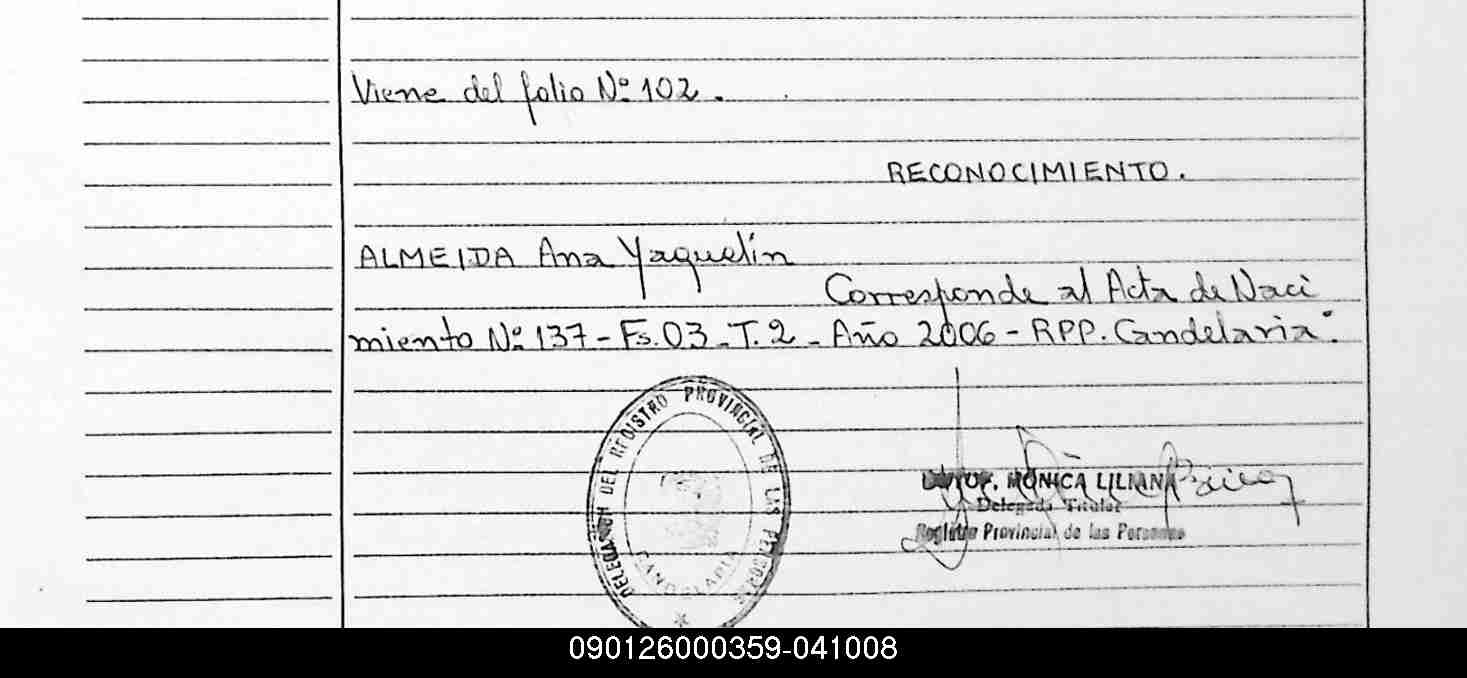 Viene del folio Nº 102.
RECONOCIMIENTO.
ALMEIDA Ana Yaquelin
Corresponde al Acta de Naci
miento Nº 137 - Fs. 03 - T. 2 - Año 2006 - RPP. Candelaria.
DELEGACION DEL REGISTRO PROVINCIAL DE LAS PERSONAS
CANDELARIA
MÓNICA LILIANA
Delegada Titular
Registro Provincial de las Personas
090126000359-041008